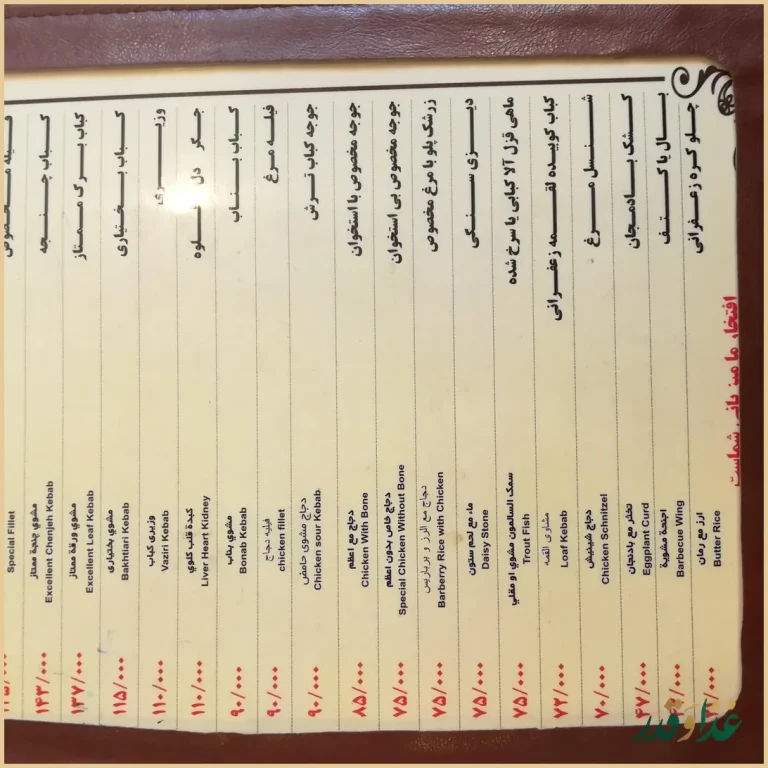 Special Fillet
کباب چنجه
مشوي چنجة ممتاز
Excellent Chenjeh Kebab
۱۴۳/۰۰۰
کباب برگ ممتاز
مشوي ورقة ممتاز
Excellent Leaf Kebab
۱۳۷/۰۰۰
کباب بختیاری
مشوي بختیاری
Bakhtiari Kebab
۱۱۵/۰۰۰
وزیری
وزیری کباب
Vaziri Kebab
۱۱۰/۰۰۰
جگر دل قلوه
كبدة قلب كلوي
Liver Heart Kidney
۱۱۰/۰۰۰
کباب بناب
مشوي بناب
Bonab Kebab
۹۰/۰۰۰
فیله مرغ
فیلیه دجاج
chicken fillet
۹۰/۰۰۰
جوجه کباب ترش
دجاج مشوی حامض
Chicken sour Kebab
۹۰/۰۰۰
جوجه مخصوص با استخوان
دجاج مع اعظم
Chicken With Bone
۸۵/۰۰۰
جوجه مخصوص بی استخوان
دجاج خاص بدون اعظم
Special Chicken Without Bone
۷۵/۰۰۰
زرشک پلو با مرغ مخصوص
دجاج مع الرز و بربارس
Barberry Rice with Chicken
۷۵/۰۰۰
دیزی سنگی
ماء مع لحم ستون
Daisy Stone
۷۵/۰۰۰
ماهی قزل آلا کبابی یا سرخ شده
سمک السالمون مشوي او مقلي
Trout Fish
۷۵/۰۰۰
کباب کوبیده لقمه زعفرانی
مشاری القمه
Loaf Kebab
۷۲/۰۰۰
شنسل مرغ
دجاج شینیش
Chicken Schnitzel
۷۰/۰۰۰
کشک بادمجان
تخثر مع بادنجان
Eggplant Curd
۴۷/۰۰۰
بال یا کتف
اجنحة مشوية
Barbecue Wing
چلو کره زعفرانی
ارز مع رمان
Butter Rice
افتخار ما میزبانی شماست
غذا و قدر